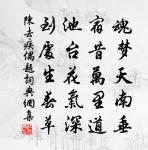 魂梦天南垂
宿昔萬里道
池台花氣深
到處生春草
陳去疾偶題詞典網集